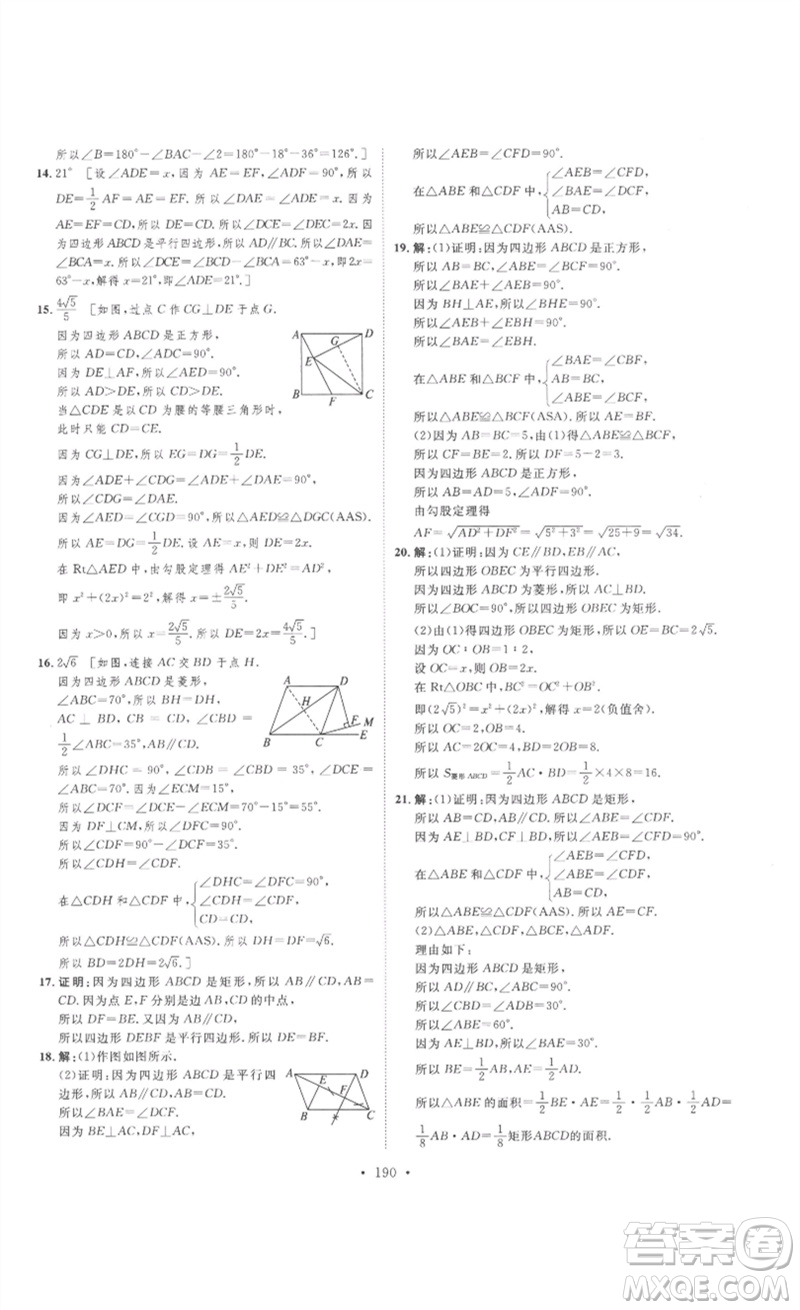 所以∠B=180°-∠BAC-∠2=180°-18°-36°=126°.]
14.21° [设∠ADE=x,因为AE=EF,∠ADF=90°,所以
DE=1/2AF=AE=EF.所以∠DAE=∠ADE=x.因为
AE=EF=CD,所以DE=CD.所以∠DCE=∠DEC=2x.因为
四边形ABCD是平行四边形,所以AD∥BC.所以∠DAE=
∠BCA=x.所以∠DCE=∠BCD-∠BCA=63°-x.即2x=
63°-x,解得x=21°,即∠ADE=21°.]
15.4√5/5 [如图,过点C作CG⊥DE于点G.
因为四边形ABCD是正方形,
所以AD=CD,∠ADC=90°.
因为DE⊥AF,所以∠AED=90°.
所以AD>DE.所以CD>DE.
当△CDE是以CD为腰的等腰三角形时,
此时只能CD=CE.
因为CG⊥DE,所以EG=DG=1/2DE.
因为∠ADE+∠CDG=∠ADE+∠DAE=90°,
所以∠CDG=∠DAE.
因为∠AED=∠CGD=90°,所以△AED≌△DGC(AAS).
所以AE=DG=1/2DE.设AE=x,则DE=2x.
在Rt△AED中,由勾股定理得AE²+DE²=AD²,
即x²+(2x)²=2²,解得x=±2√5/5.
因为x>0,所以x=2√5/5.所以DE=2x=4√5/5.]
16.2√6 [如图,连接AC交BD于点H.
因为四边形ABCD是菱形,
∠ABC=70°,所以BH=DH,
AC⊥BD,CB=CD,∠CBD=
1/2∠ABC=35°,AB∥CD.
所以∠DHC=90°,∠CDB=∠CBD=35°,∠DCE=
∠ABC=70°.因为∠ECM=15°,
所以∠DCF=∠DCE-∠ECM=70°-15°=55°.
因为DF⊥CM,所以∠DFC=90°.
所以∠CDF=90°-∠DCF=35°.
所以∠CDH=∠CDF.
在△CDH和△CDF中,{∠DHC=∠DFC=90°,
∠CDH=∠CDF,
CD=CD,
所以△CDH≌△CDF(AAS).所以DH=DF=√6.
所以BD=2DH=2√6.]
17.证明:因为四边形ABCD是矩形,所以AB∥CD,AB=
CD.因为点E,F分别是AB,CD的中点,
所以DF=BE.又因为DF∥BE,
所以四边形DEBF是平行四边形.所以DE=BF.
18.解:(1)作图如图所示.
(2)证明:因为四边形ABCD是平行四
边形,所以AB=CD,AB∥CD.
所以∠BAE=∠DCF.
因为BE⊥AC,DF⊥AC,
所以∠AEB=∠CFD=90°.
在△ABE和△CDF中,{∠AEB=∠CFD,
∠BAE=∠DCF,
AB=CD,
所以△ABE≌△CDF(AAS).
19.解:(1)证明:因为四边形ABCD是正方形,
所以AB=BC,∠ABE=∠BCF=90°.
所以∠BAE+∠AEB=90°.
因为BH⊥AE,所以∠BHE=90°.
所以∠AEB+∠EBH=90°.
所以∠BAE=∠EBH.
在△ABE和△BCF中,{∠BAE=∠CBF,
AB=BC,
∠ABE=∠BCF,
所以△ABE≌△BCF(ASA).所以AE=BF.
(2)因为AB=BC=5,由(1)得△ABE≌△BCF,
所以CF=BE=2.所以DF=5-2=3.
因为四边形ABCD是正方形,
所以AB=AD=5,∠ADF=90°.
由勾股定理得
AF=√(AD²+DF²)=√(5²+3²)=√(25+9)=√34.
20.解:(1)证明:因为CE∥BD,EB∥AC,
所以四边形OBEC为平行四边形.
因为四边形ABCD为菱形,所以AC⊥BD.
所以∠BOC=90°,所以四边形OBEC为矩形.
(2)由(1)得四边形OBEC为矩形,所以OE=BC=2√5.
因为OC∶OB=1∶2,
设OC=x,则OB=2x.
在Rt△OBC中,BC²=OC²+OB²,
即(2√5)²=x²+(2x)²,解得x=2(负值舍).
所以OC=2,OB=4.
所以AC=2OC=4,BD=2OB=8.
所以S菱形ABCD=1/2AC·BD=1/2×4×8=16.
21.解:(1)证明:因为四边形ABCD是矩形,
所以AB=CD,AB∥CD.所以∠ABE=∠CDF.
因为AE⊥BD,CF⊥BD,所以∠AEB=∠CFD=90°.
在△ABE和△CDF中,{∠AEB=∠CFD,
∠ABE=∠CDF,
AB=CD,
所以△ABE≌△CDF(AAS).所以AE=CF.
(2)△ABF,△ADE,△BCF,△CDE.
理由如下:
因为四边形ABCD是矩形,
所以AD∥BC,∠BAD=90°.
所以∠CBD=∠ADB=30°.
所以∠ABE=60°.
因为AE⊥BD,所以∠BAE=30°.
所以BE=1/2AB,AE=1/2AD.
所以△ABE的面积=1/2BE·AE=1/2×1/2AB·1/2AD=
1/8AB·AD=1/8矩形ABCD的面积.
A
D
G
E
B
F
C
A
D
H
M
F
B
C
E
A
D
E
F
B
C
• 190 •
答案卷
MXQE.COM